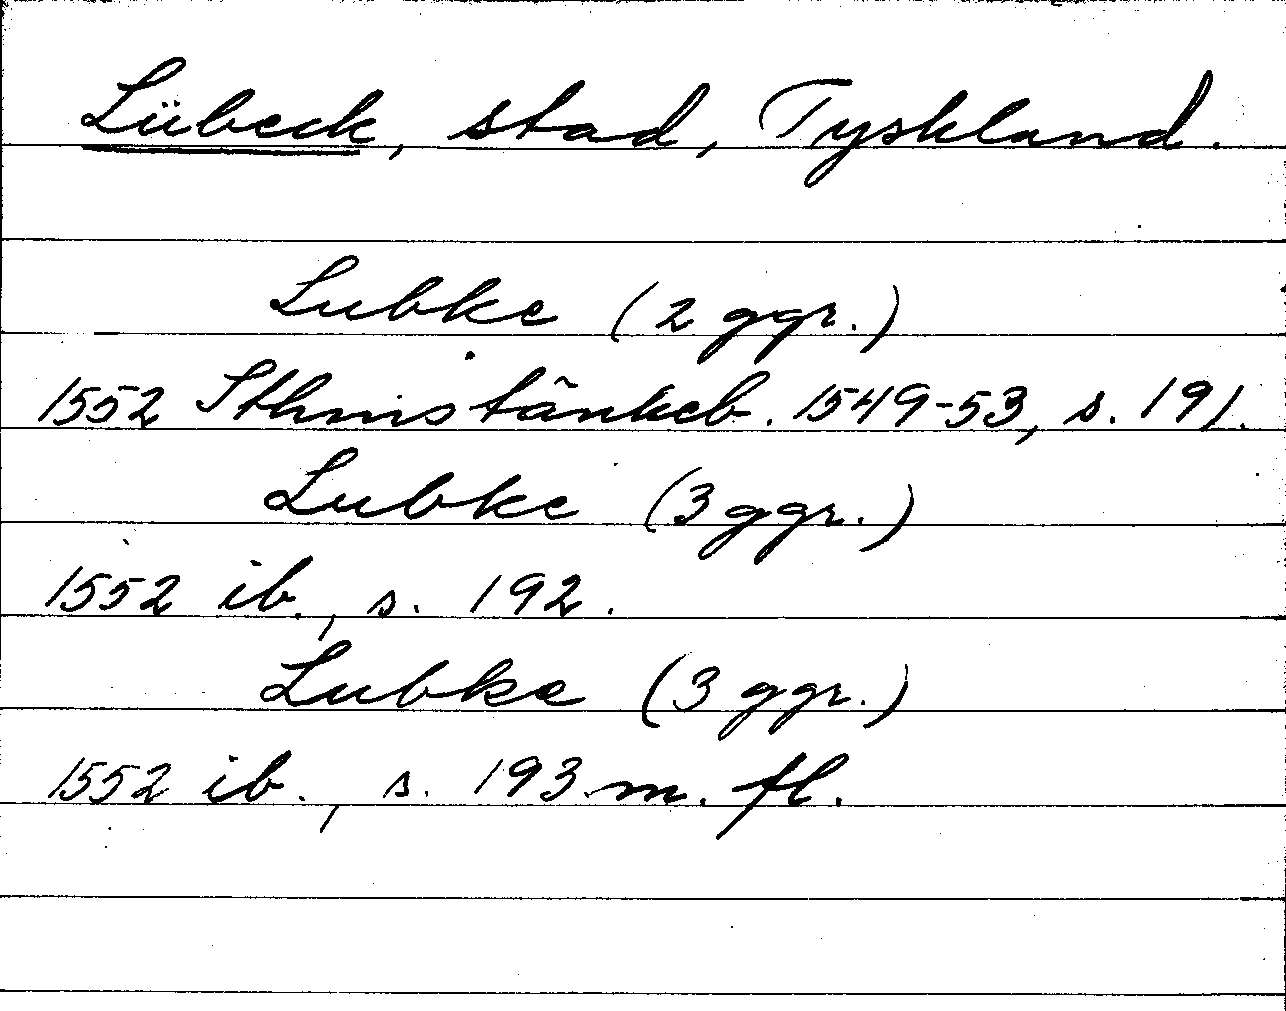 Lübeck, stad, Tyskland.
Lubke (2 ggr.)
1552 Sthmstänkeb. 1549-53, s. 191.
Lubke (3 ggr.)
1552 ib., s. 192.
Lubke (3 ggr.)
1552 ib., s. 193 m. fl.